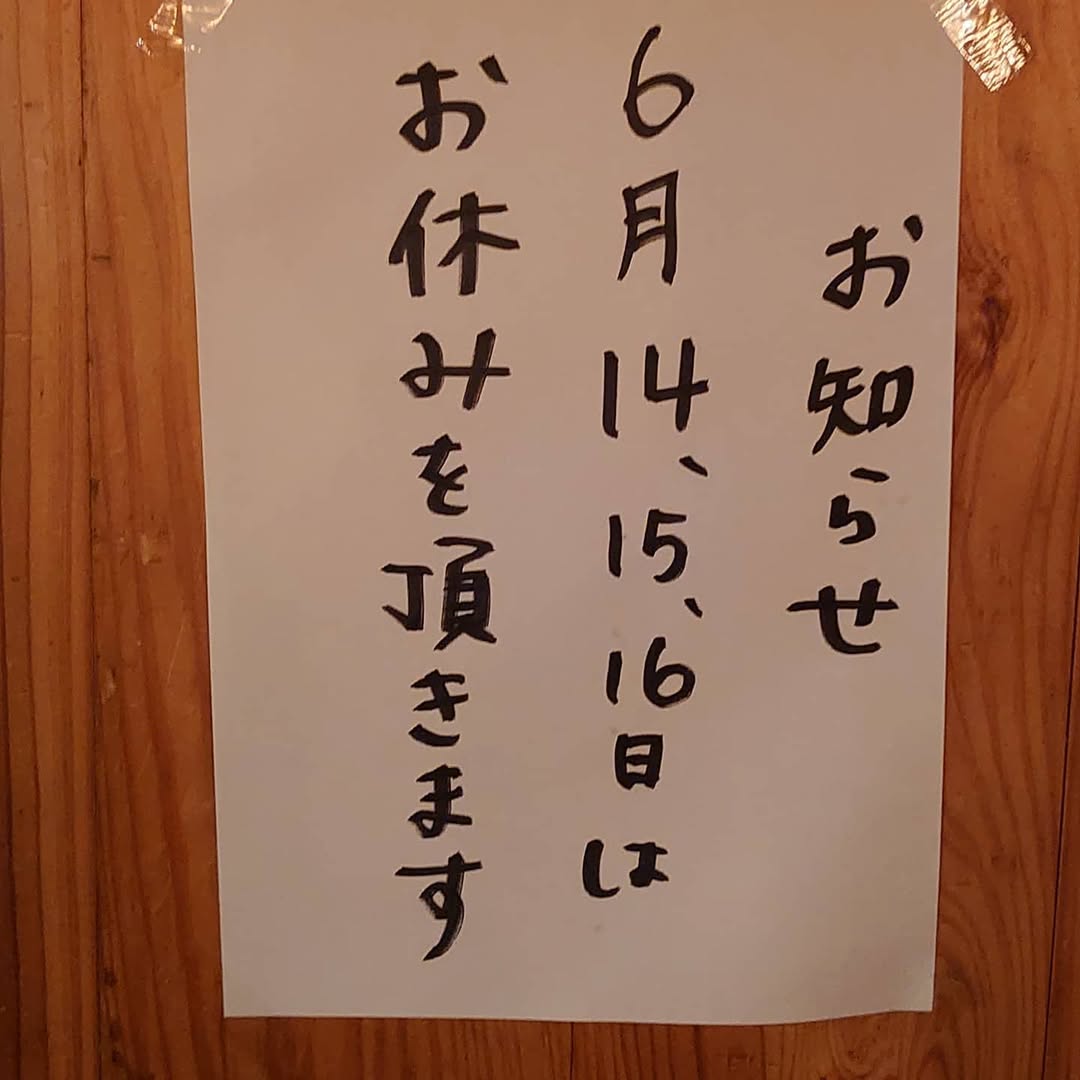 お知らせ
6月14、15、16日は
お休みを頂きます